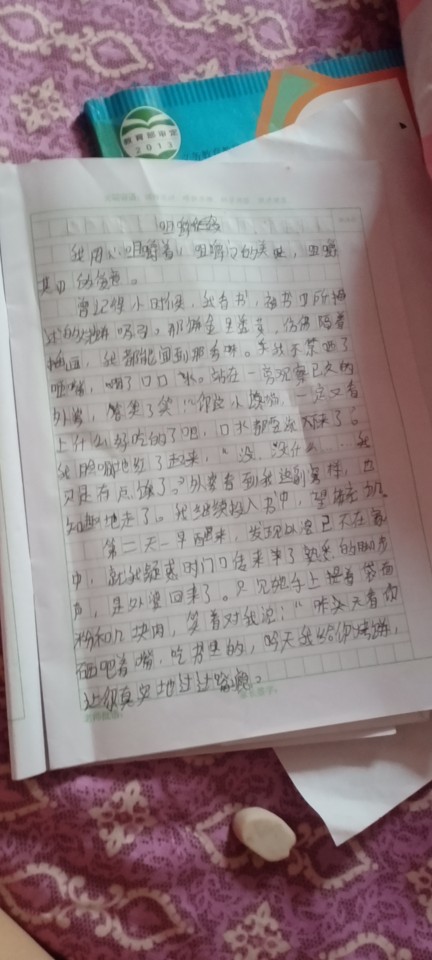 教育部审定
2013
我用心咀嚼着，咀嚼它的美味，咀嚼
其中
曾记得小时候，我看书，被书中所描
述的 吸引。那饼金里透黄，仿佛隔着
插画，我都能闻到那香味。我于是咂了
咂嘴，咽了口口水。站在一旁观察已久的
外婆，笑了笑："你这小馋猫，一定又看
上什么好吃的了吧，口水都快流下来了。"
我脸唰地红了起来，"没，没什么...我
只是有点馋了。"外婆看到我这副窘样，也
知趣地走了。我继续投入书中，望梅
第二天一早醒来，发现外婆已不在家
中，就我疑惑时门口传来了熟悉的脚步
声，是外婆回来了。只见她手上提着袋面
粉和几块肉，笑着对我说："昨天看你
砸吧着嘴，吃书里的，今天我给你烤饼，
让你真实地过过嘴瘾。